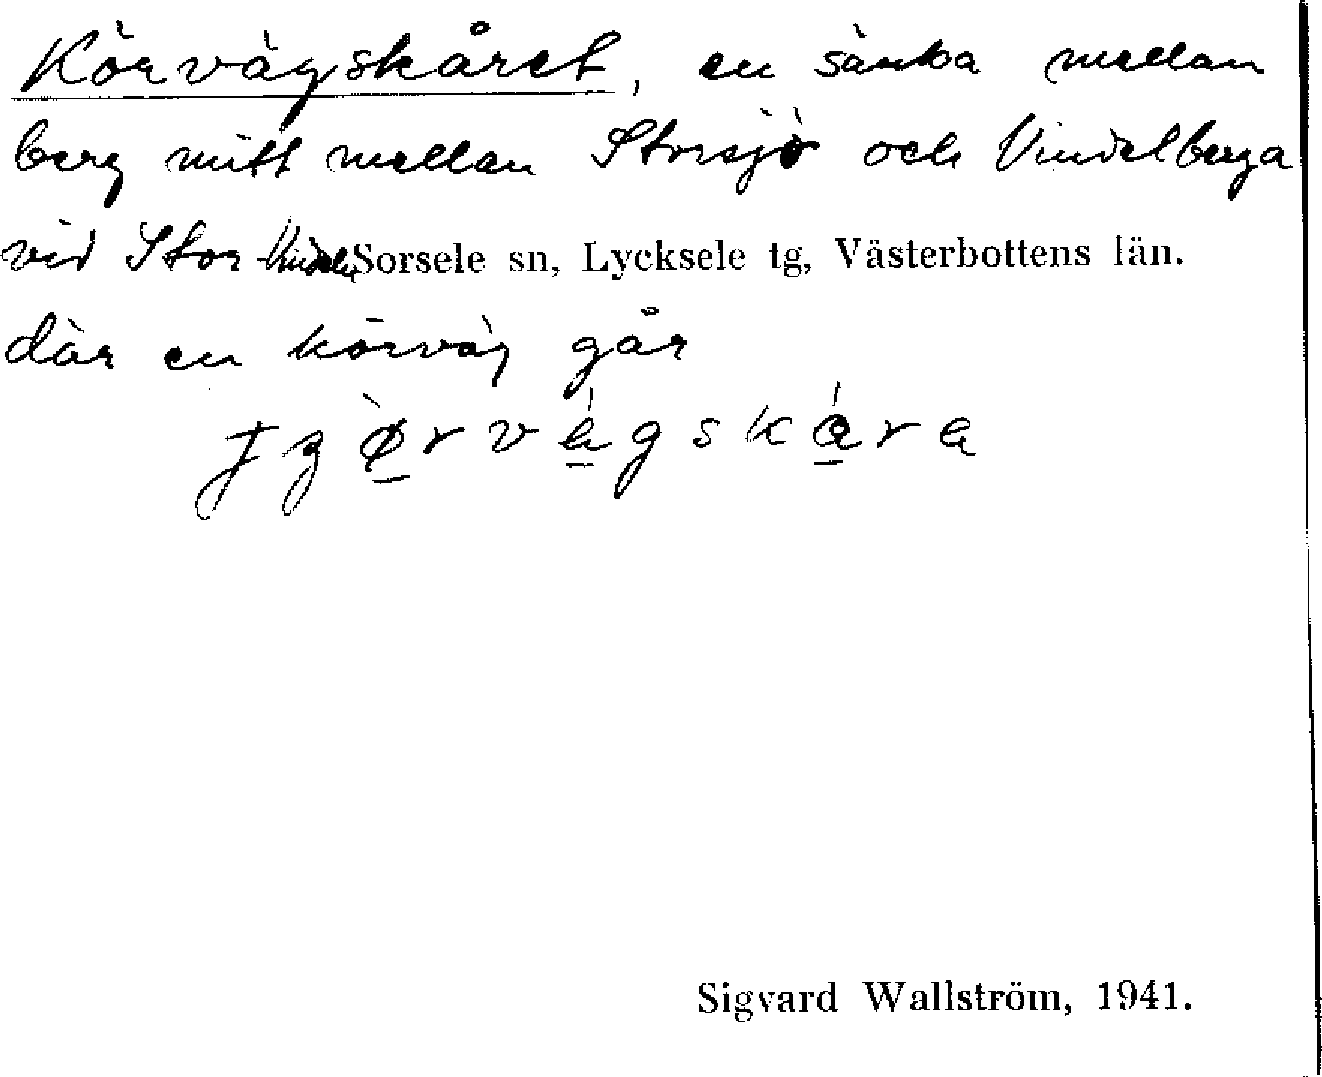 Körvägskåret, en sänka mellan
berg mitt mellan Storsjö och Vindelberga
vid Stor-Vindeln Sorsele sn, Lycksele tg, Västerbottens län.
där en körväg går
Sigvard Wallström, 1941.